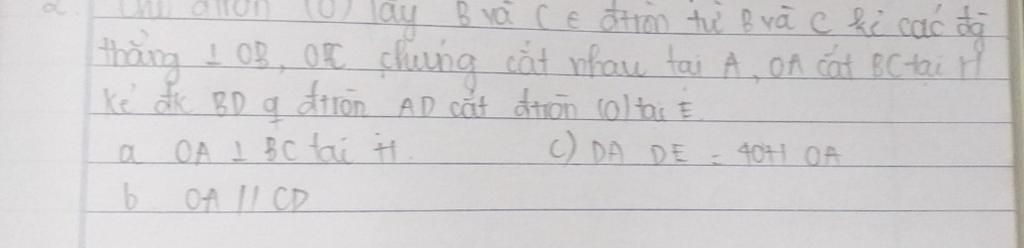 2. Cho đtròn (O) lấy B và C ∈ đtròn từ B và C kẻ các đg
thẳng ⊥ OB, OC chúng cắt nhau tại A, OA cắt BC tại H
kẻ đk BD q đtròn AD cắt đtròn (O) tại E
a OA ⊥ BC tại H. c) DA DE = 4OH OA
b OA // CD